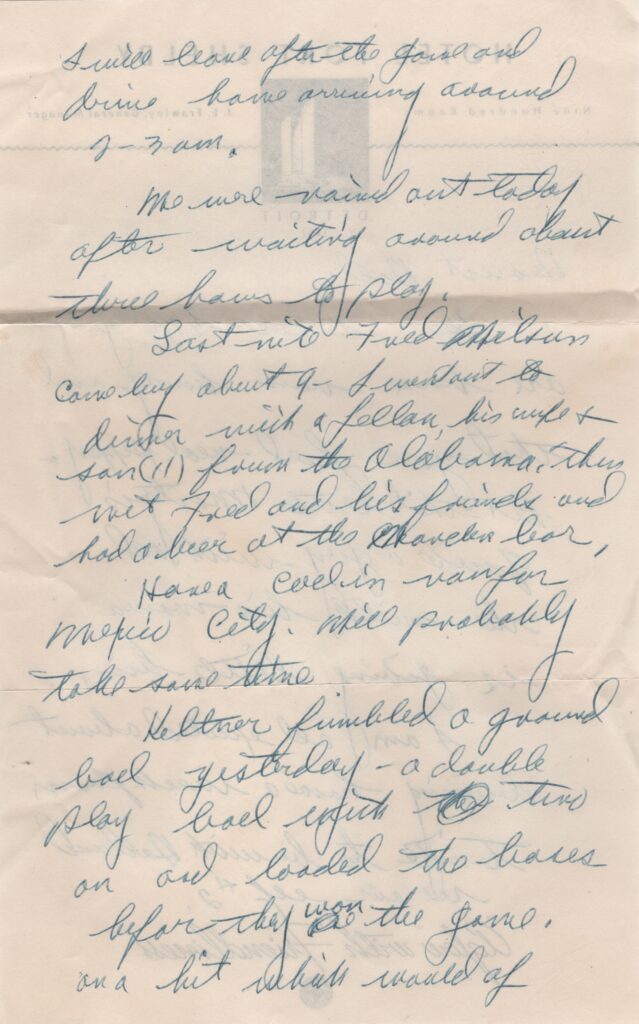 I will leave after the game and
drive home arriving around
2-3 am.
We were rained out today
after waiting around about
three hours to play.
Last nite Fred Wilson
came by about 9- I went out to
dinner with a fellow, his wife &
son (11) from the Alabama. then
met Fred and his friends and
had a beer at the bar,
Have a call in now for
Mexico City. Will probably
take some time
Keltner fumbled a ground
ball yesterday - a double
play ball with two
on and loaded the bases
befor they won the game.
on a hit which would of
DETROIT
Nine Hundred Rooms
J. E. Frawley, General Manager
HOTEL